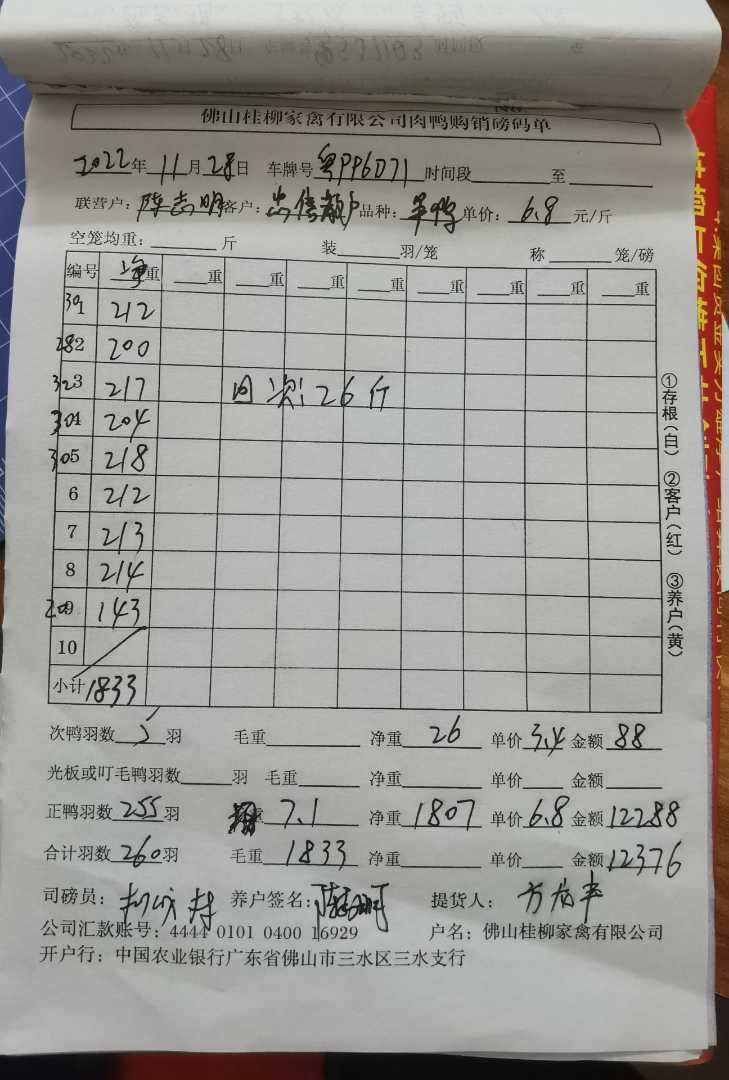 佛山桂柳家禽有限公司肉鸭购销磅码单
2022年11月28日 车牌号粤PP6D71时间段 至
联营户:陈志明客户:忠信 品种: 单价:6.8元/斤
空笼均重: 斤 装 羽/笼 称 笼/磅
编号 净重 重 重 重 重 重 重 重 重
301 212
282 200
323 217 回次:26斤
304 204
305 218
6 212
7 213
8 214
209 143
10
小计 1833
次鸭羽数5羽 毛重 净重26 单价3.4 金额88
光板或叮毛鸭羽数 羽 毛重 净重 单价 金额
正鸭羽数255羽 重7.1 净重1807 单价6.8 金额12288
合计羽数260羽 毛重1833 净重 单价 金额12376
司磅员: 养户签名: 提货人:
公司汇款账号:4444 0101 0400 16929 户名:佛山桂柳家禽有限公司
开户行:中国农业银行广东省佛山市三水区三水支行
①存根(白) ②客户(红) ③养户(黄)